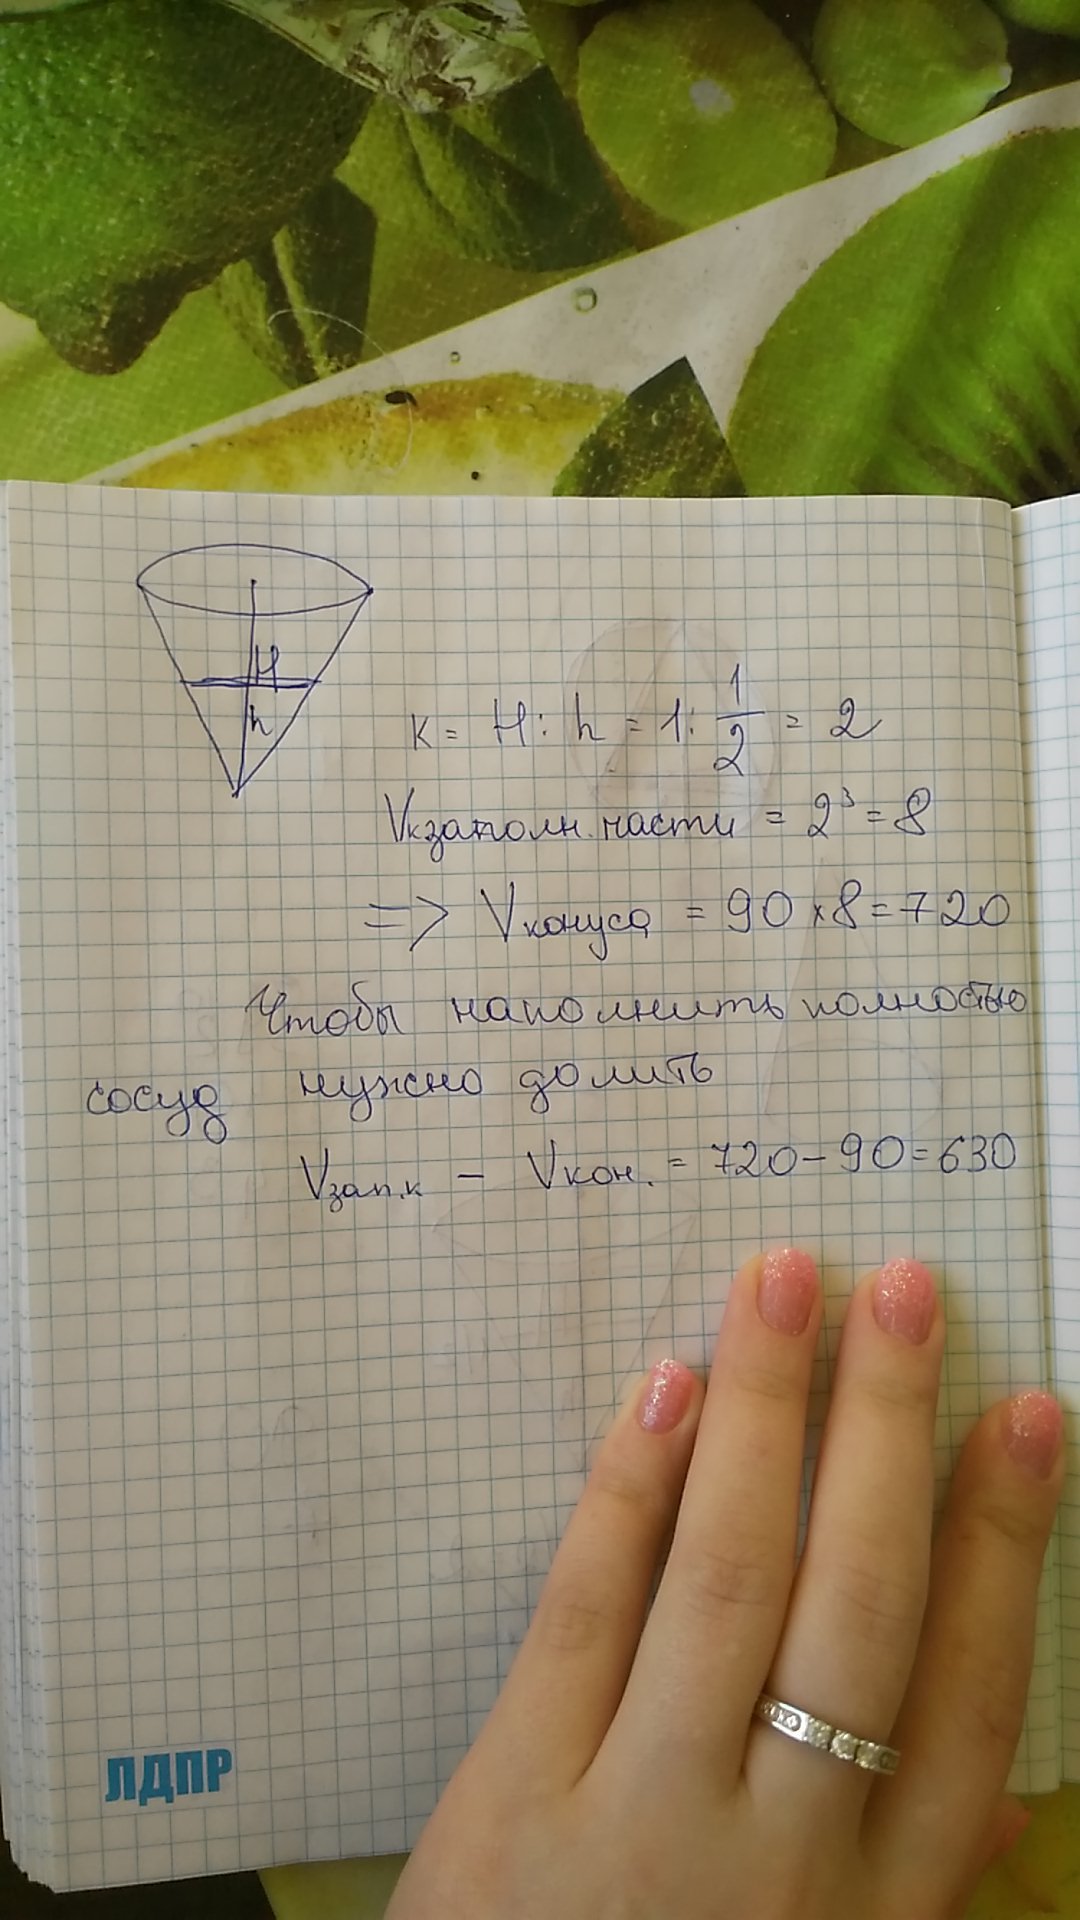 H
h
K = H : h = 1 : 1/2 = 2
Vк заполн. части = 2³ = 8
=> Vконуса = 90 × 8 = 720
Чтобы наполнить полностью
сосуд нужно долить
Vзап.к - Vкон. = 720 - 90 = 630
ЛДПР